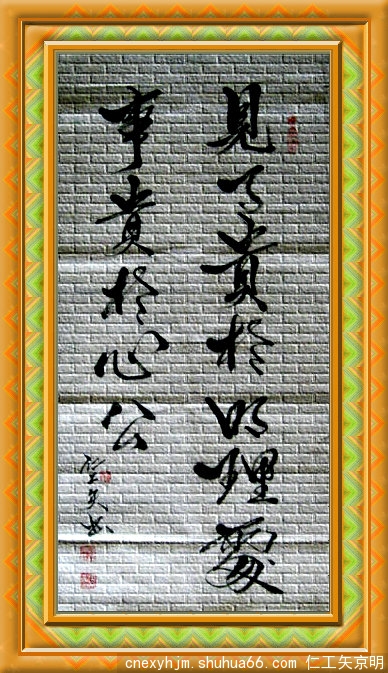 見事貴於明理處
事貴於心公
cnexyhjm.shuhua66.com 仁工矢京明